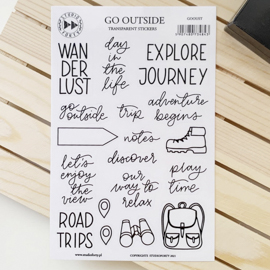 GO OUTSIDE
TRANSPARENT STICKERS
WAN
DER
LUST
day
in the
life
EXPLORE
JOURNEY
go
outside
trip
adventure
begins
notes
let's
enjoy
the view
discover
our way to
relax
play
time
ROAD
TRIPS